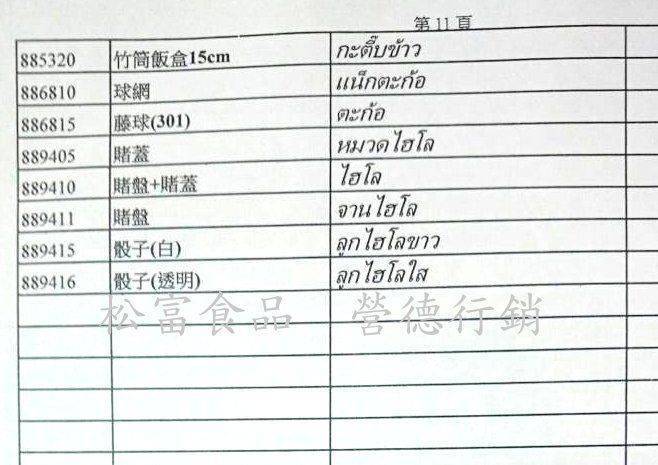 第 11 頁
885320 竹筒飯盒15cm กะติ๊บข้าว
886810 球網 แน็กตะก้อ
886815 藤球(301) ตะก้อ
889405 賭蓋 หมวดไฮโล
889410 賭盤+賭蓋 ไฮโล
889411 賭盤 จานไฮโล
889415 骰子(白) ลูกไฮโลขาว
889416 骰子(透明) ลูกไฮโลใส
松富食品 營德行銷